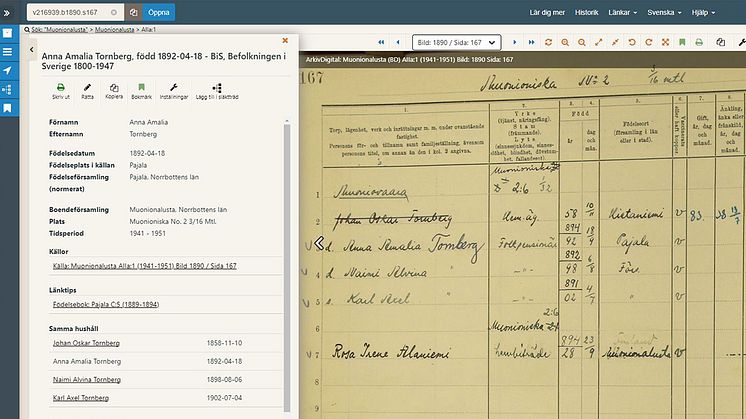 v216939.b1890.s167
Öppna
Lär dig mer
Historik
Länkar
Svenska
Hjälp
Sök: "Muonionalusta" > Muonionalusta > Alla:1
Bild: 1890 / Sida: 167
Anna Amalia Tornberg, född 1892-04-18 - BiS, Befolkningen i
Sverige 1800-1947
Skriv ut
Rätta
Kopiera
Bokmärk
Inställningar
Lägg till i släktträd
Förnamn Anna Amalia
Efternamn Tornberg
Födelsedatum 1892-04-18
Födelseplats i källan Pajala
Födelseförsamling Pajala, Norrbottens län
(normerat)
Boendeförsamling Muonionalusta, Norrbottens län
Plats Muonioniska No. 2 3/16 Mtl.
Tidsperiod 1941 - 1951
Källor
Källa: Muonionalusta Alla:1 (1941-1951) Bild 1890 / Sida 167
Länktips
Födelsebok: Pajala C:5 (1889-1894)
Samma hushåll
Johan Oskar Tornberg 1858-11-10
Anna Amalia Tornberg 1892-04-18
Naimi Alvina Tornberg 1898-08-06
Karl Axel Tornberg 1902-07-04
ArkivDigital: Muonionalusta (BD) Alla:1 (1941-1951) Bild 1890 Sida: 167
167 Muonioniska No 2 3/16 mtl
1.
Torp, lägenhet, verk och inrättningar m. m. under ovanstående
fastighet.
Persons för- och tillnamn samt familjeställning, ävensom
persons titel, om annan än den i kol. 2 angivna.
2.
Yrke
(tjänst, näringsfång).
Stam
(främmande).
Lyte
(sinnessjukdom, sinnesslöhet, blindhet, dövstumhet, fallandesot).
Född
3. år
4. dag och mån.
5.
Födelseort
(församling i län
eller i stad).
6.
7.
Gift, år, dag och månad.
8.
1 Muoniovaara
Muonioniska
2:6
2 Johan Oskar Tornberg Hem.äg. 58 10/11 Kietaniemi v 83.
3 d. Anna Amalia Tornberg Folkpensionär 892 92 18/4 Pajala v
4 d. Naimi Alvina " 98 6/8 Förs. v
5 s. Karl Axel " 02 4/7 " v
6 Muonioniska 2:6
7 Rosa Irene Alaniemi hembiträde 28 23/9 Muonionalusta v
8
9